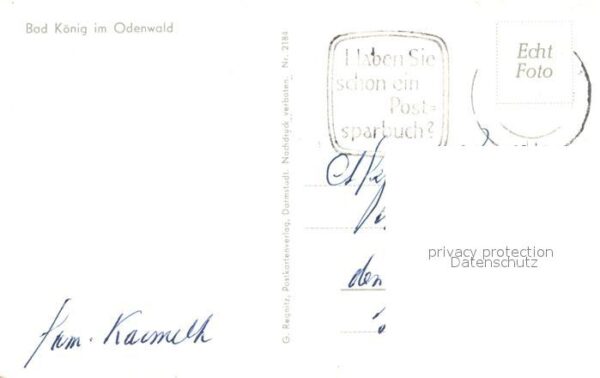 Bad König im Odenwald
G. Regnitz, Postkartenverlag, Darmstadt. Nachdruck verboten. Nr. 2184
Haben Sie
schon ein
Post=
sparbuch?
Echt
Foto
den
privacy protection
Datenschutz
Fam.